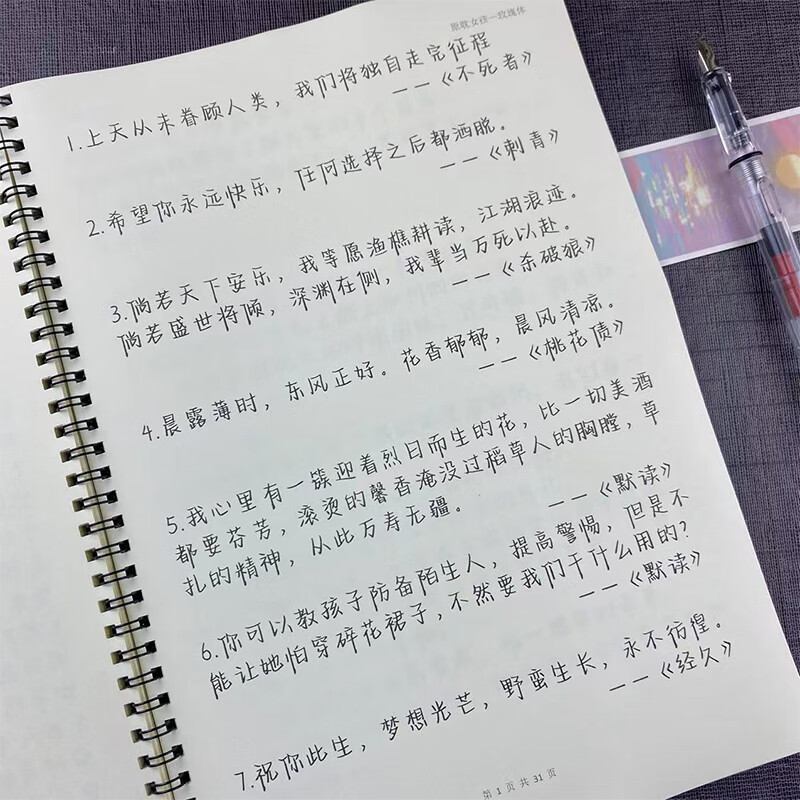 原耽女孩—玫瑰体
1.上天从未眷顾人类，我们将独自走完征程
——《不死者》
2.希望你永远快乐，任何选择之后都洒脱。
——《刺青》
3.倘若天下安乐，我等愿渔樵耕读，江湖浪迹。
倘若盛世将倾，深渊在侧，我辈当万死以赴。
——《杀破狼》
4.晨露薄时，东风正好。花香郁郁，晨风清凉。
——《桃花债》
5.我心里有一簇迎着烈日而生的花，比一切美酒
都要芬芳，滚烫的馨香淹没过稻草人的胸膛，草
扎的精神，从此万寿无疆。
——《默读》
6.你可以教孩子防备陌生人，提高警惕，但是不
能让她怕穿碎花裙子，不然要我们干什么用的？
——《默读》
7.祝你此生，梦想光芒，野蛮生长，永不彷徨。
——《经久》
第 1 页 共 31 页